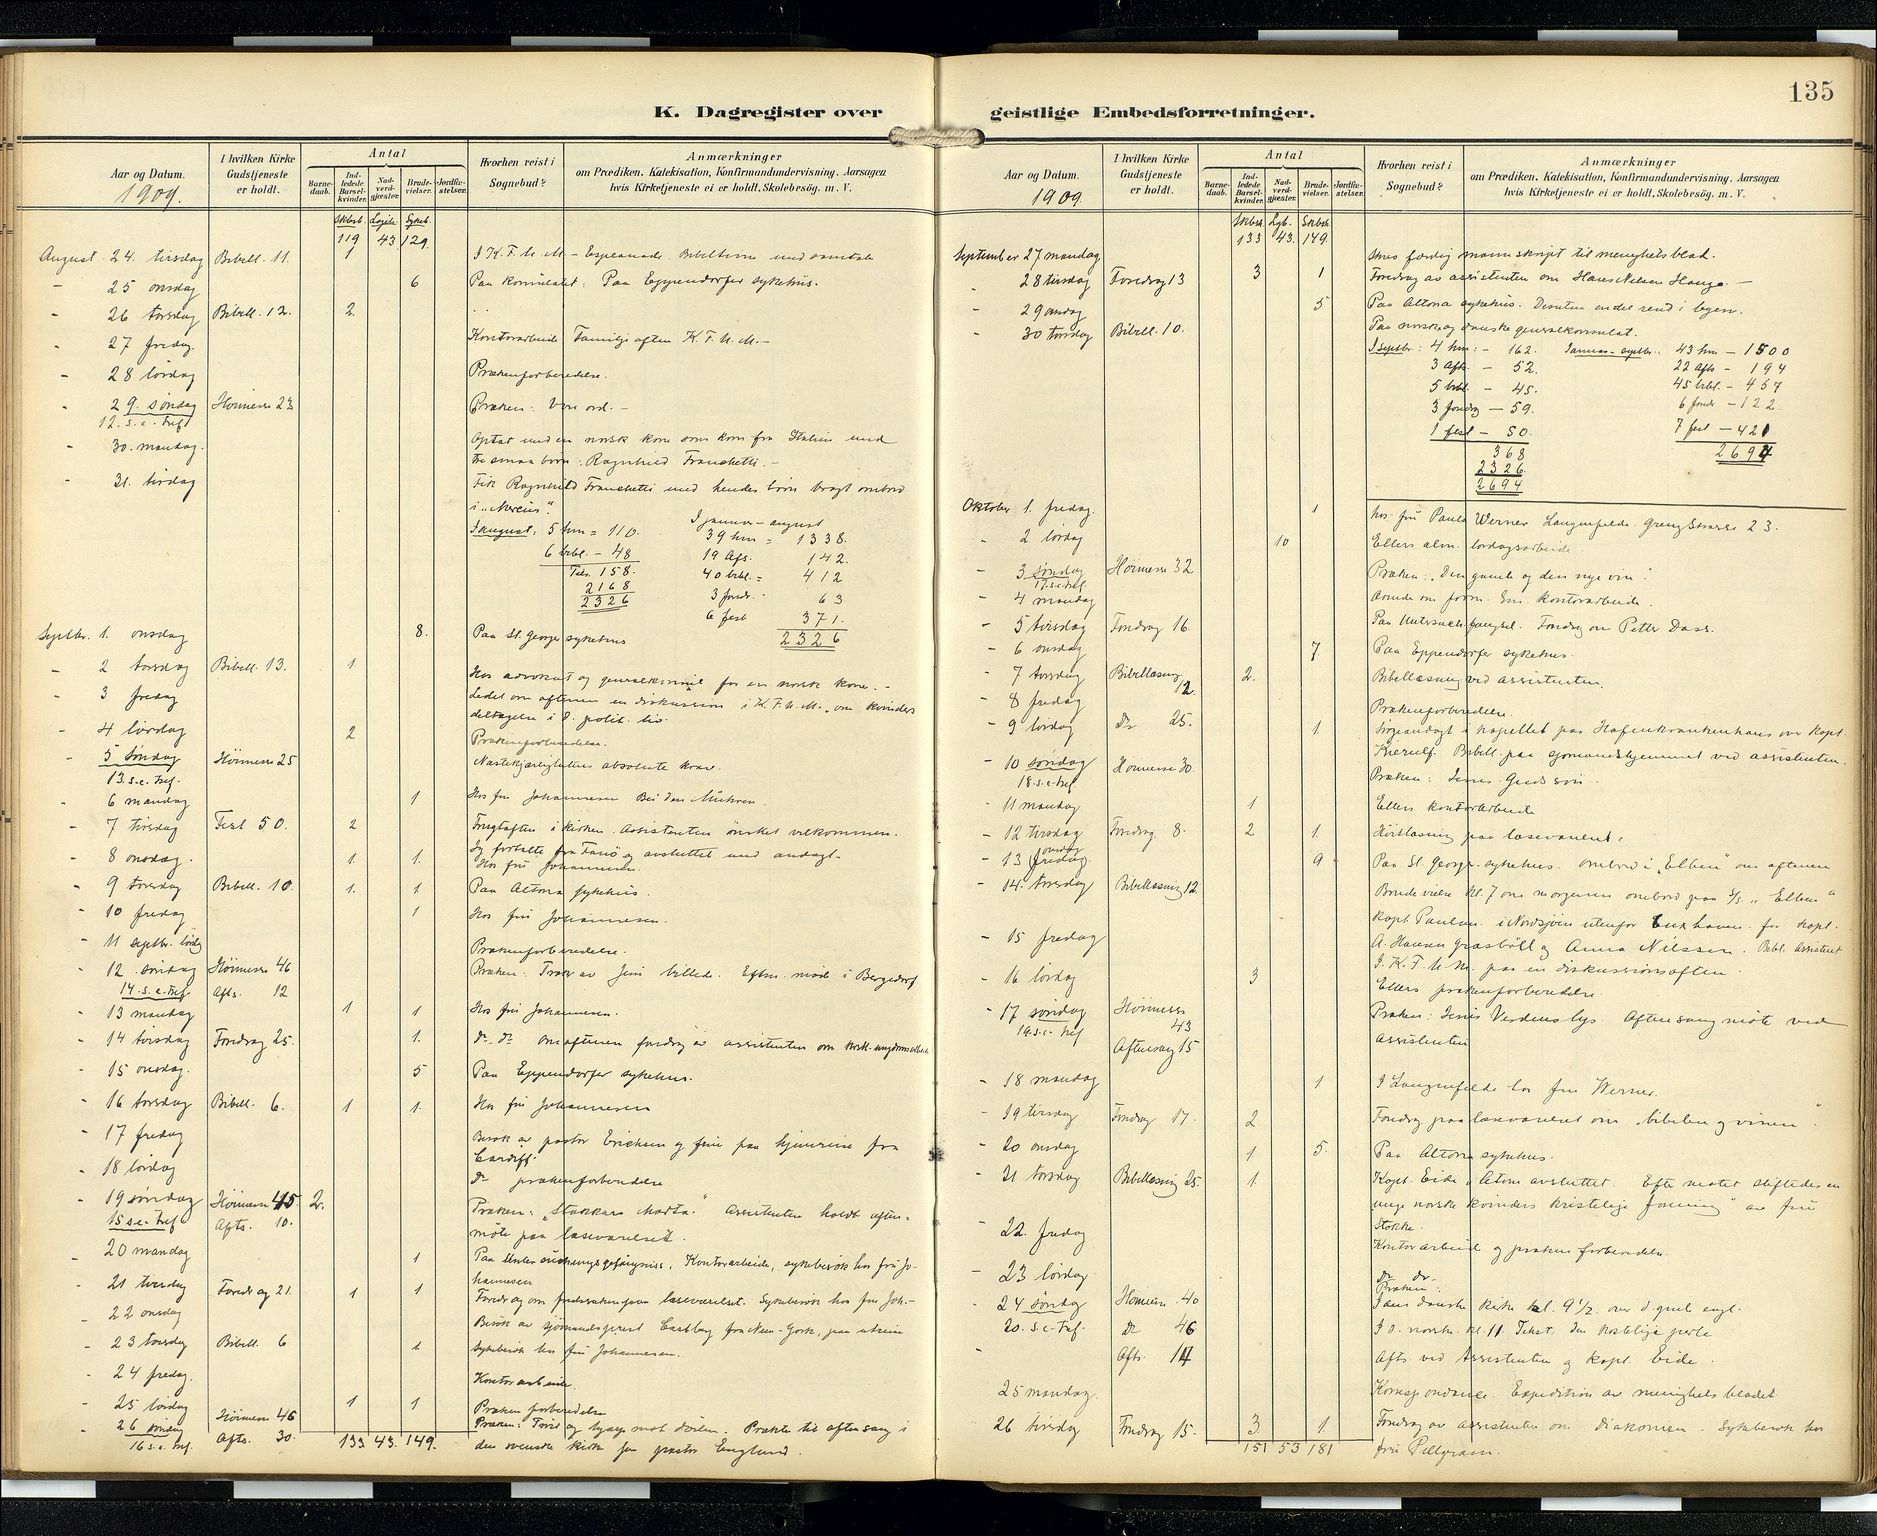 135
K. Dagregister over geistlige Embedsforretninger.
Aar og Datum.
1909.
I hvilken Kirke Gudstjeneste er holdt.
Antal
Barnedaab.
Indledede Barselkvinder.
Nadverdgjæster.
Brudevielser.
Jordfæstelser.
Hvorhen reist i Sognebud?
Anmærkninger
om Prædiken, Katekisation, Konfirmandundervisning, Aarsagen
hvis Kirketjeneste ei er holdt, Skolebesøg. m. V.
Skbsb. Sykeb.
119 43 129.
August 24. tirsdag Bibell. 11. 1 I K. F. U. M. – Esplanade. Bibeltime med samtale
– 25 onsdag 6 Paa konsulatet. Paa Eppendorfer sykehus.
– 26 torsdag Bibell. 12. 2.
– 27 fredag. Kontorarbeide Familjeaften K. F. U. M. –
– 28 lørdag Prækenforberedelse.
– 29. søndag Høimesse 23 Præken: Vore ord. –
12. s. e. tref.
– 30. mandag. Optat med en norsk kone som kom fra Italien med
tre smaa børn: Ragnhild Franchetti. –
– 31. tirsdag Fik Ragnhild Franchetti med hendes børn bragt ombord
i
I august: 5 hm = 110. I januar – august
39 hm = 1338.
6 bibl. – 48 19 Afs. 142.
158. 40 bibl. = 412
2168 3 foredr. 63
2326 6 fest 371.
2326
Septbr. 1. onsdag 8. Paa St. Georgs sykehus
– 2 torsdag Bibell. 13. 1. Hos advokat og for en norsk kone. –
– 3 fredag Ledet om aftenen en diskussion i K. F. U. M. „om kvinders
deltagelse i d. polit. liv.
– 4 lørdag 2 Prækenforberedelse.
– 5 søndag Høimesse 25 Næstekjærlighetens absolute krav.
13. s. e. tref.
6 mandag 1 Hos fru Johannesen Bei den Mühren.
– 7 tirsdag Fest 50. 2 Frugtaften i kirken. Assistenten ønsket velkommen.
Jeg fortalte fra Fanø og avsluttet med andagt –
– 8 onsdag. 1. 1. Hos fru Johannesen.
– 9 torsdag Bibell. 10. 1. 1 Paa Altona sykehus.
– 10 fredag 1 Hos fru Johannesen.
– 11 septbr. lørdg Prækenforberedelse.
– 12. søndag Høimesse 46 Præken: Træk av Jesu billede. Efterm. møde i Bergedorf
14. s. e. tref. Afts. 12
– 13 mandag 1 1 Hos fru Johannesen.
– 14 tirsdag Foredrag 25. 1. do. do. om aftenen foredrag av assistenten om
– 15 onsdag. 5 Paa Eppendorfer sykehus.
– 16 torsdag Bibell. 6. 1 1. Hos fru Johannesen
– 17 fredag Besøk av pastor Erichsen og frue paa hjemreise fra
Cardiff.
– 18 lørdag do prækenforberedelse
– 19 søndag Høimesse 45. 2. Præken: „Stakkars Marta." Assistenten holdt aften-
15 s. e. tref Afts. 10. møte paa læseværelset.
– 20 mandag 1 Paa Untersuchungsgefängniss. Kontorarbeide, sykebesøk hos fru Jo-
hannesen
– 21 tirsdag Foredrag 21. 1 1 Foredrag om fredssaken paa læseværelset. Sykebesøk hos fru Joh. –
– 22 onsdag Besøk av sjømandsprest fra New-York, paa utreise
– 23 torsdag Bibell. 6 1 Sykebesøk hos fru Johannesen.
– 24 fredag. Kontorarbeide.
– 25 lørdag 1 1 Prækenforberedelse
– 26 søndag Høimesse 46
16 s. e. tref. Afts. 30. 133 43. 149. den svenske kirke for pastor Englund.
Aar og Datum.
1909.
I hvilken Kirke Gudstjeneste er holdt.
Antal
Barnedaab.
Indledede Barselkvinder.
Nadverdgjæster.
Brudevielser.
Jordfæstelser.
Hvorhen reist i Sognebud?
Anmærkninger
om Prædiken, Katekisation, Konfirmandundervisning, Aarsagen
hvis Kirketjeneste ei er holdt, Skolebesög. m. V.
Skbsk. Skbsk.
133 43. 149.
September 27 mandag Skrev færdig manuskript til menighetsblad.
– 28 tirsdag Foredrag 13 3 1 Foredrag av assistenten om Hans Nilsen Hauge. –
– 29 onsdag 5 Paa Altona sykehus. Desuten endel rend i byen.
– 30 torsdag Bibell. 10. Paa norske og danske generalkonsulat.
I septbr: 4 hm: – 162. Januar – septbr. 43 hm – 1500
3 Aft. – 52. 22 Afts – 194
5 bibl – 45. 45 bibl – 457
3 foredrg – 59. 6 foredr – 122
1 fest – 50. 7 fest – 421
368 2694
2326
2694
Oktober 1. fredag 1 hos fru Paula Werner Langenfelde. Grenzstrasse 23.
– 2 lørdag 10 Ellers alm. lørdagsarbeide.
– 3 søndag Høimesse 32 Præken: „Den gamle og den nye vin."
17. s. e. tref.
– 4 mandag Em. kontorarbeide.
– 5 tirsdag Foredrag 16. Foredrag om Petter Dass.
– 6 onsdag 7 Paa Eppendorfer sykehus.
– 7 torsdag Bibellæsning 12. 2. Bibellæsning ved assistenten.
– 8 fredag Prækenforberedelse.
– 9 lørdag Do 25. 1. Sørgeandagt i kapellet paa Hafenkrankenhaus over kapt.
Kierulf. Bibell. paa sjømandshjemmet ved assistenten.
– 10 søndag Høimesse 30. Præken: Jesus. Guds søn.
18. s. e. tref.
– 11 mandag 1 Ellers kontorarbeide
– 12 tirsdag Foredrag. 8. 2 1. Høitlæsning paa læseværelset.
– 13 onsdag 9 Paa St. Georgs sykehus. ombord i „Elben" om aftenen
– 14. torsdag Bibellæsning 12. Brudevielse kl. 7 om morgenen ombord paa S/s. „Elben"
kapt. Paulsen i Nordsjøen utenfor Cuxhaven for kapt.
– 15 fredag A. Hansen Græsbøll og Anna Nilssen. Bibl. Assistent
I. K. F. U. M. paa en diskussionsaften.
– 16 lørdag 3 Ellers prækenforberedelse.
– 17 søndag Høimesse 43 Præken: Jesus Verdens lys. Aftensangmøte ved
19. s. e. tref Aftensang 15 assistenten
– 18 mandag 1 I Langenfelde hos fru Werner.
– 19 tirsdag Foredrag 17. 2 Foredrag paa læseværelset om „bibelen og vinen".
– 20 onsdag 1 5. Paa Altona sykehus.
– 21 torsdag Bibellæsning 25. 1 Kapt. Eide, avsluttet. Efter møtet stiftedes en
„unge norske kvinders kristelige forening" av fru
Stokke.
– 22. fredag Kontorarbeid og prækenforberedelse.
– 23 lørdag do do.
Præken:
– 24 søndag Høimesse 40 I den danske kirke kl. 9 1/2 over d.
20. s. e. tref. do 46 I d. norske. kl. 11. Tekst. Den kostelige perle
– Afts. 14 Afts ved Assistenten og kapt. Eide.
25 mandag. Korrespondance. Expedition av menighetsbladet
26 tirsdag Foredrag 15. 3 1 Foredrag av assistenten om Diakonien. Sykebesøk hos
151 53 181 fru Pellgram.